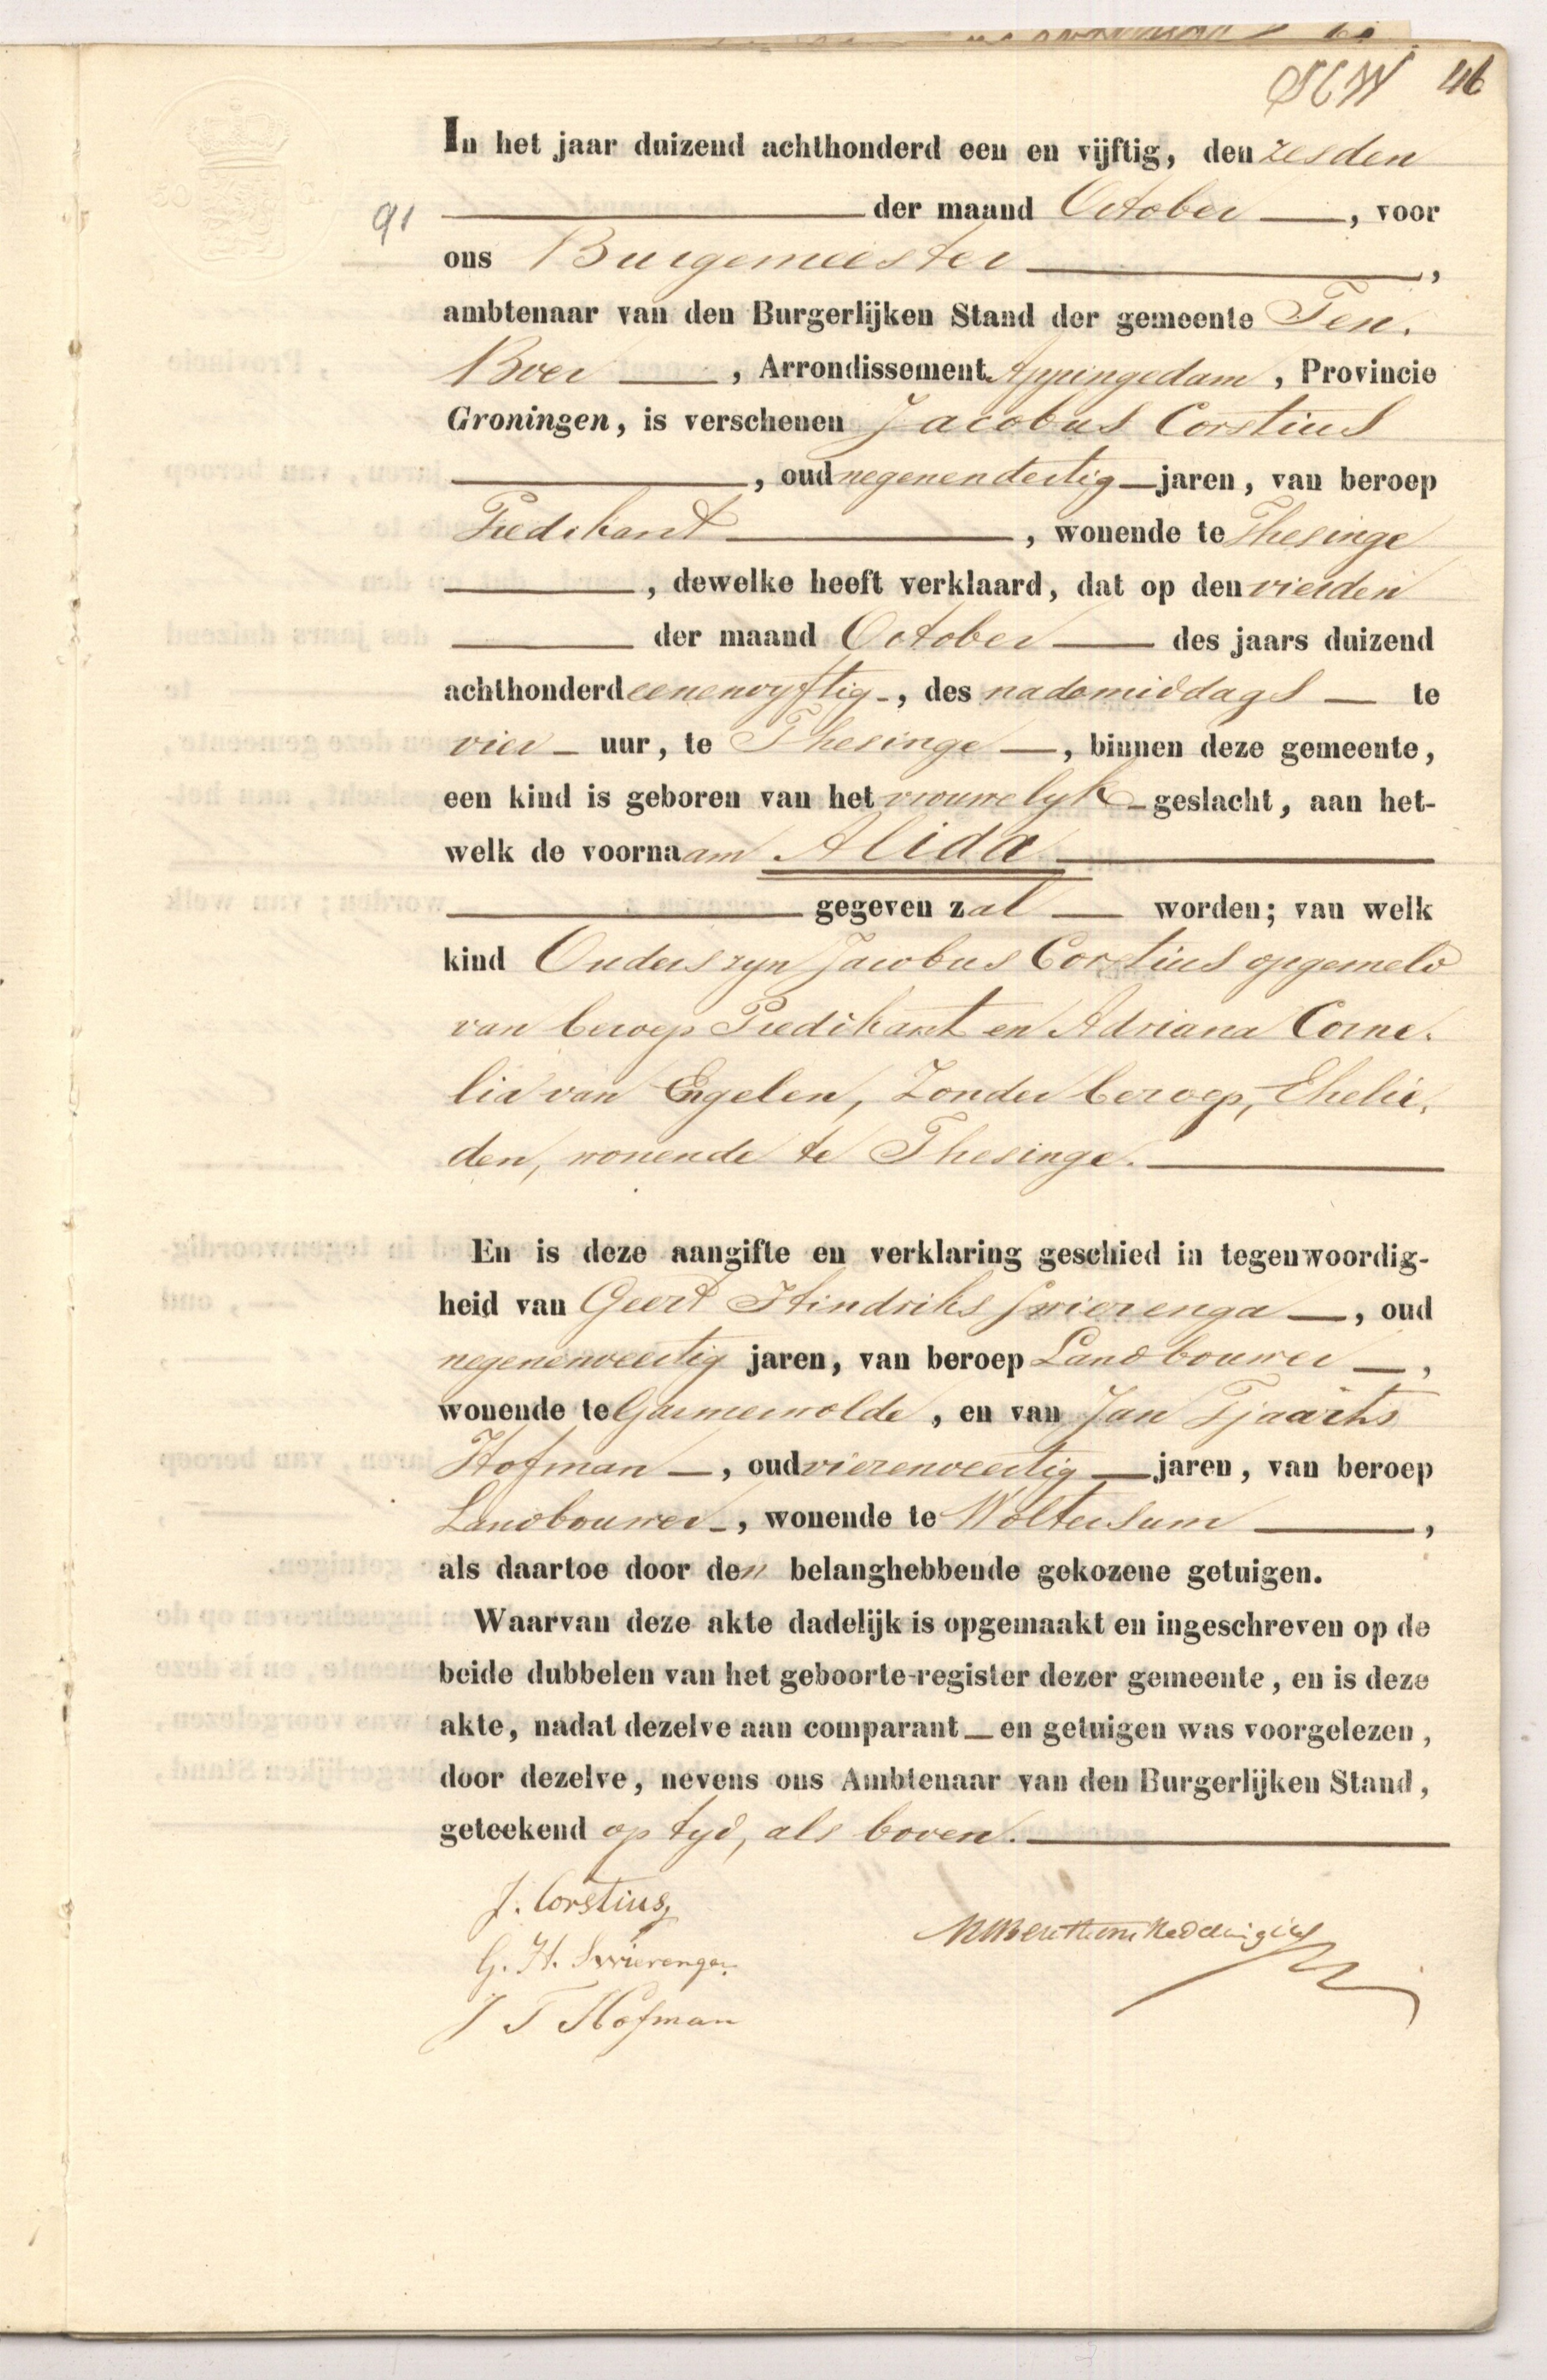 46
In het jaar duizend achthonderd een en vijftig, den zesden
91
der maand October, voor
ons Burgemeester,
ambtenaar van den Burgerlijken Stand der gemeente Ten
Boer, Arrondissement Appingedam, Provincie
Groningen, is verschenen Jacobus Corstius
, oud negenendertig jaren, van beroep
Predikant, wonende te Thesinge
, dewelke heeft verklaard, dat op den vierden
der maand October des jaars duizend
achthonderd eenenvyftig, des nademiddags te
vier uur, te Thesinge, binnen deze gemeente,
een kind is geboren van het vrouwelyk geslacht, aan het-
welk de voornaam Alida
gegeven zal worden; van welk
kind Ouders zyn Jacobus Corstius opgemeld
van beroep Predikant en Adriana Corne-
lia van Engelen, Zonder beroep, Ehelie-
den, wonende te Thesinge.
En is deze aangifte en verklaring geschied in tegenwoordig-
heid van Geert Hindriks Swierenga, oud
negenenveertig jaren, van beroep Landbouwer,
wonende te Garmerwolde, en van Jan Tjaarts
Hofman, oud vierenveertig jaren, van beroep
Landbouwer, wonende te Woltersum,
als daartoe door den belanghebbende gekozene getuigen.
Waarvan deze akte dadelijk is opgemaakt en ingeschreven op de
beide dubbelen van het geboorte-register dezer gemeente, en is deze
akte, nadat dezelve aan comparant en getuigen was voorgelezen,
door dezelve, nevens ons Ambtenaar van den Burgerlijken Stand,
geteekend op tyd, als boven.
J. Corstius
G. H. Swierenga
J T Hofman